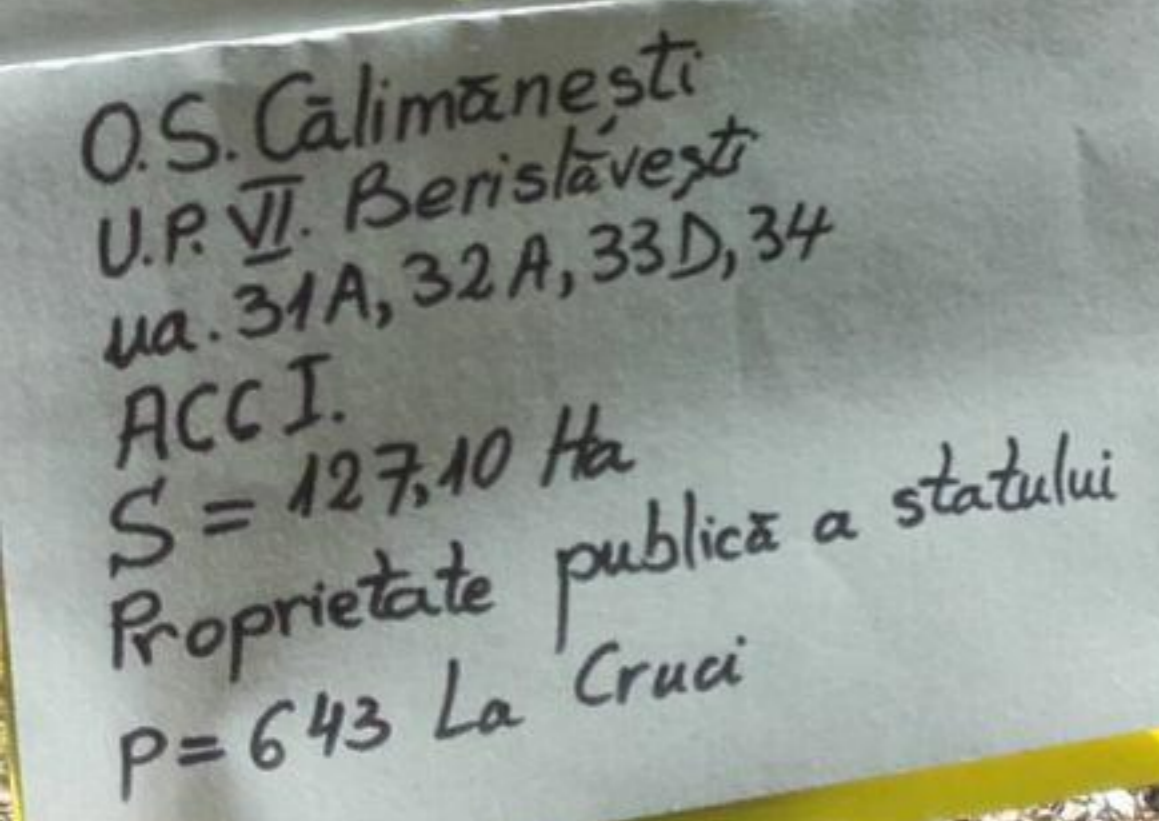 O.S. Călimănești
U.P. VI. Berislăvești
ua. 31A, 32A, 33D, 34
ACC I.
S = 127,10 Ha
Proprietate publică a statului
P= 643 La Cruci